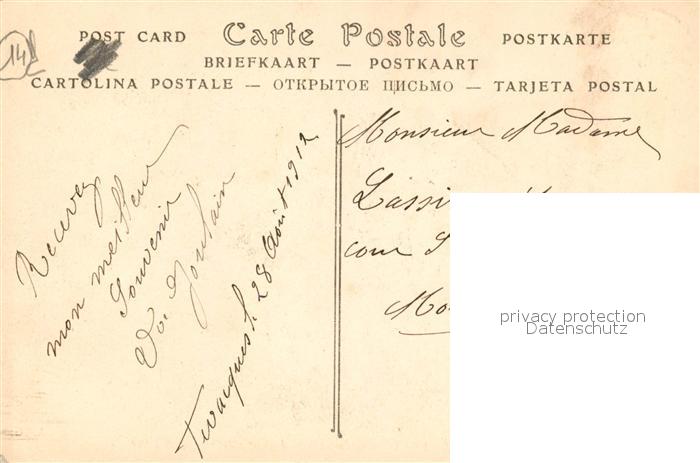 14
POST CARD Carte Postale POSTKARTE
BRIEFKAART — POSTKAART
CARTOLINA POSTALE — ОТКРЫТОЕ ПИСЬМО — TARJETA POSTAL
Recevez
mon meilleur
Souvenir
28 Août 1912
Monsieur Madame
Lassi
cour
privacy protection
Datenschutz